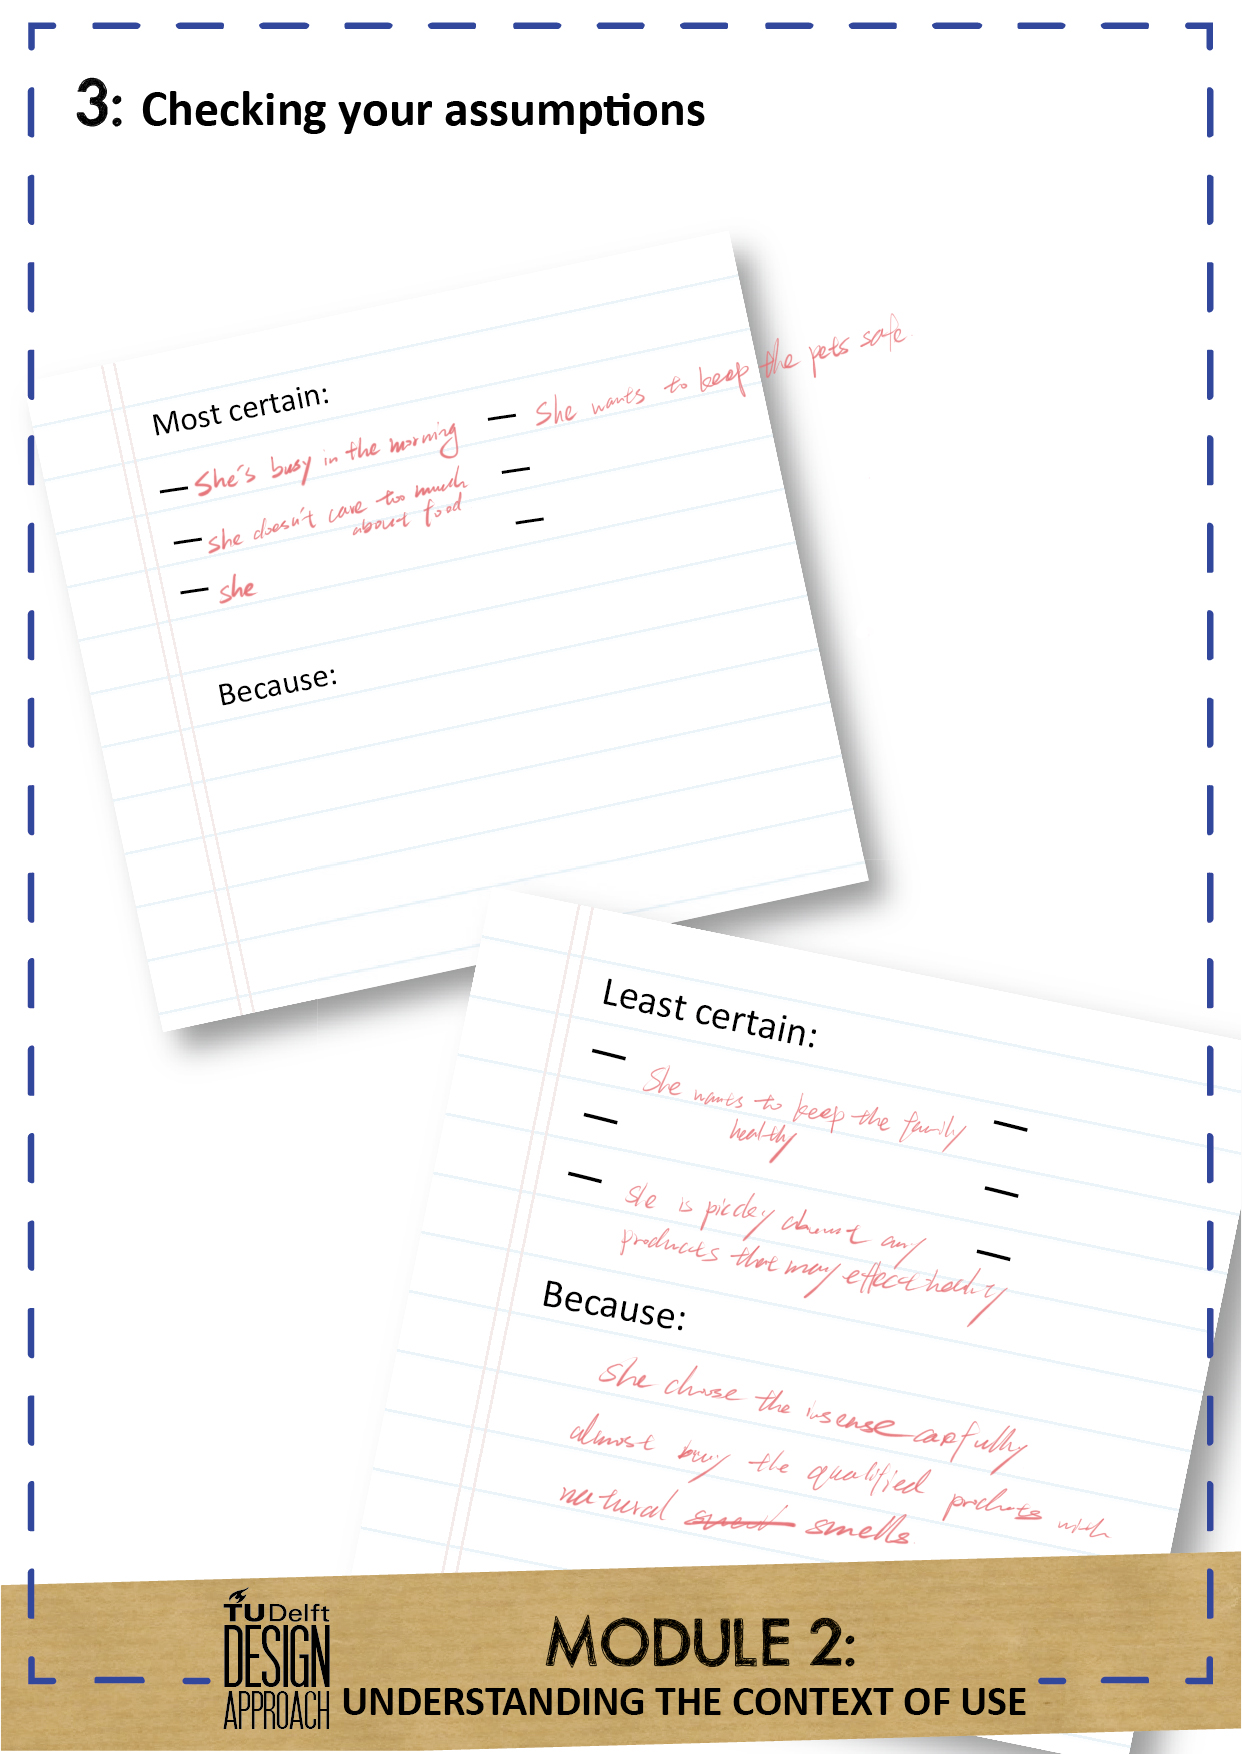 3: Checking your assumptions
Most certain:
— She's busy in the morning
— She doesn't care too much
about food
— she
— She wants to keep the pets safe.
—
—
Because:
Least certain:
— She wants to keep the family
healthy
—
— She is picky about any
products that may effect healthy
—
—
—
Because:
She choose the insense carfully
almost buy the qualified products with
natural smells.
TU Delft
DESIGN
APPROACH
MODULE 2:
UNDERSTANDING THE CONTEXT OF USE